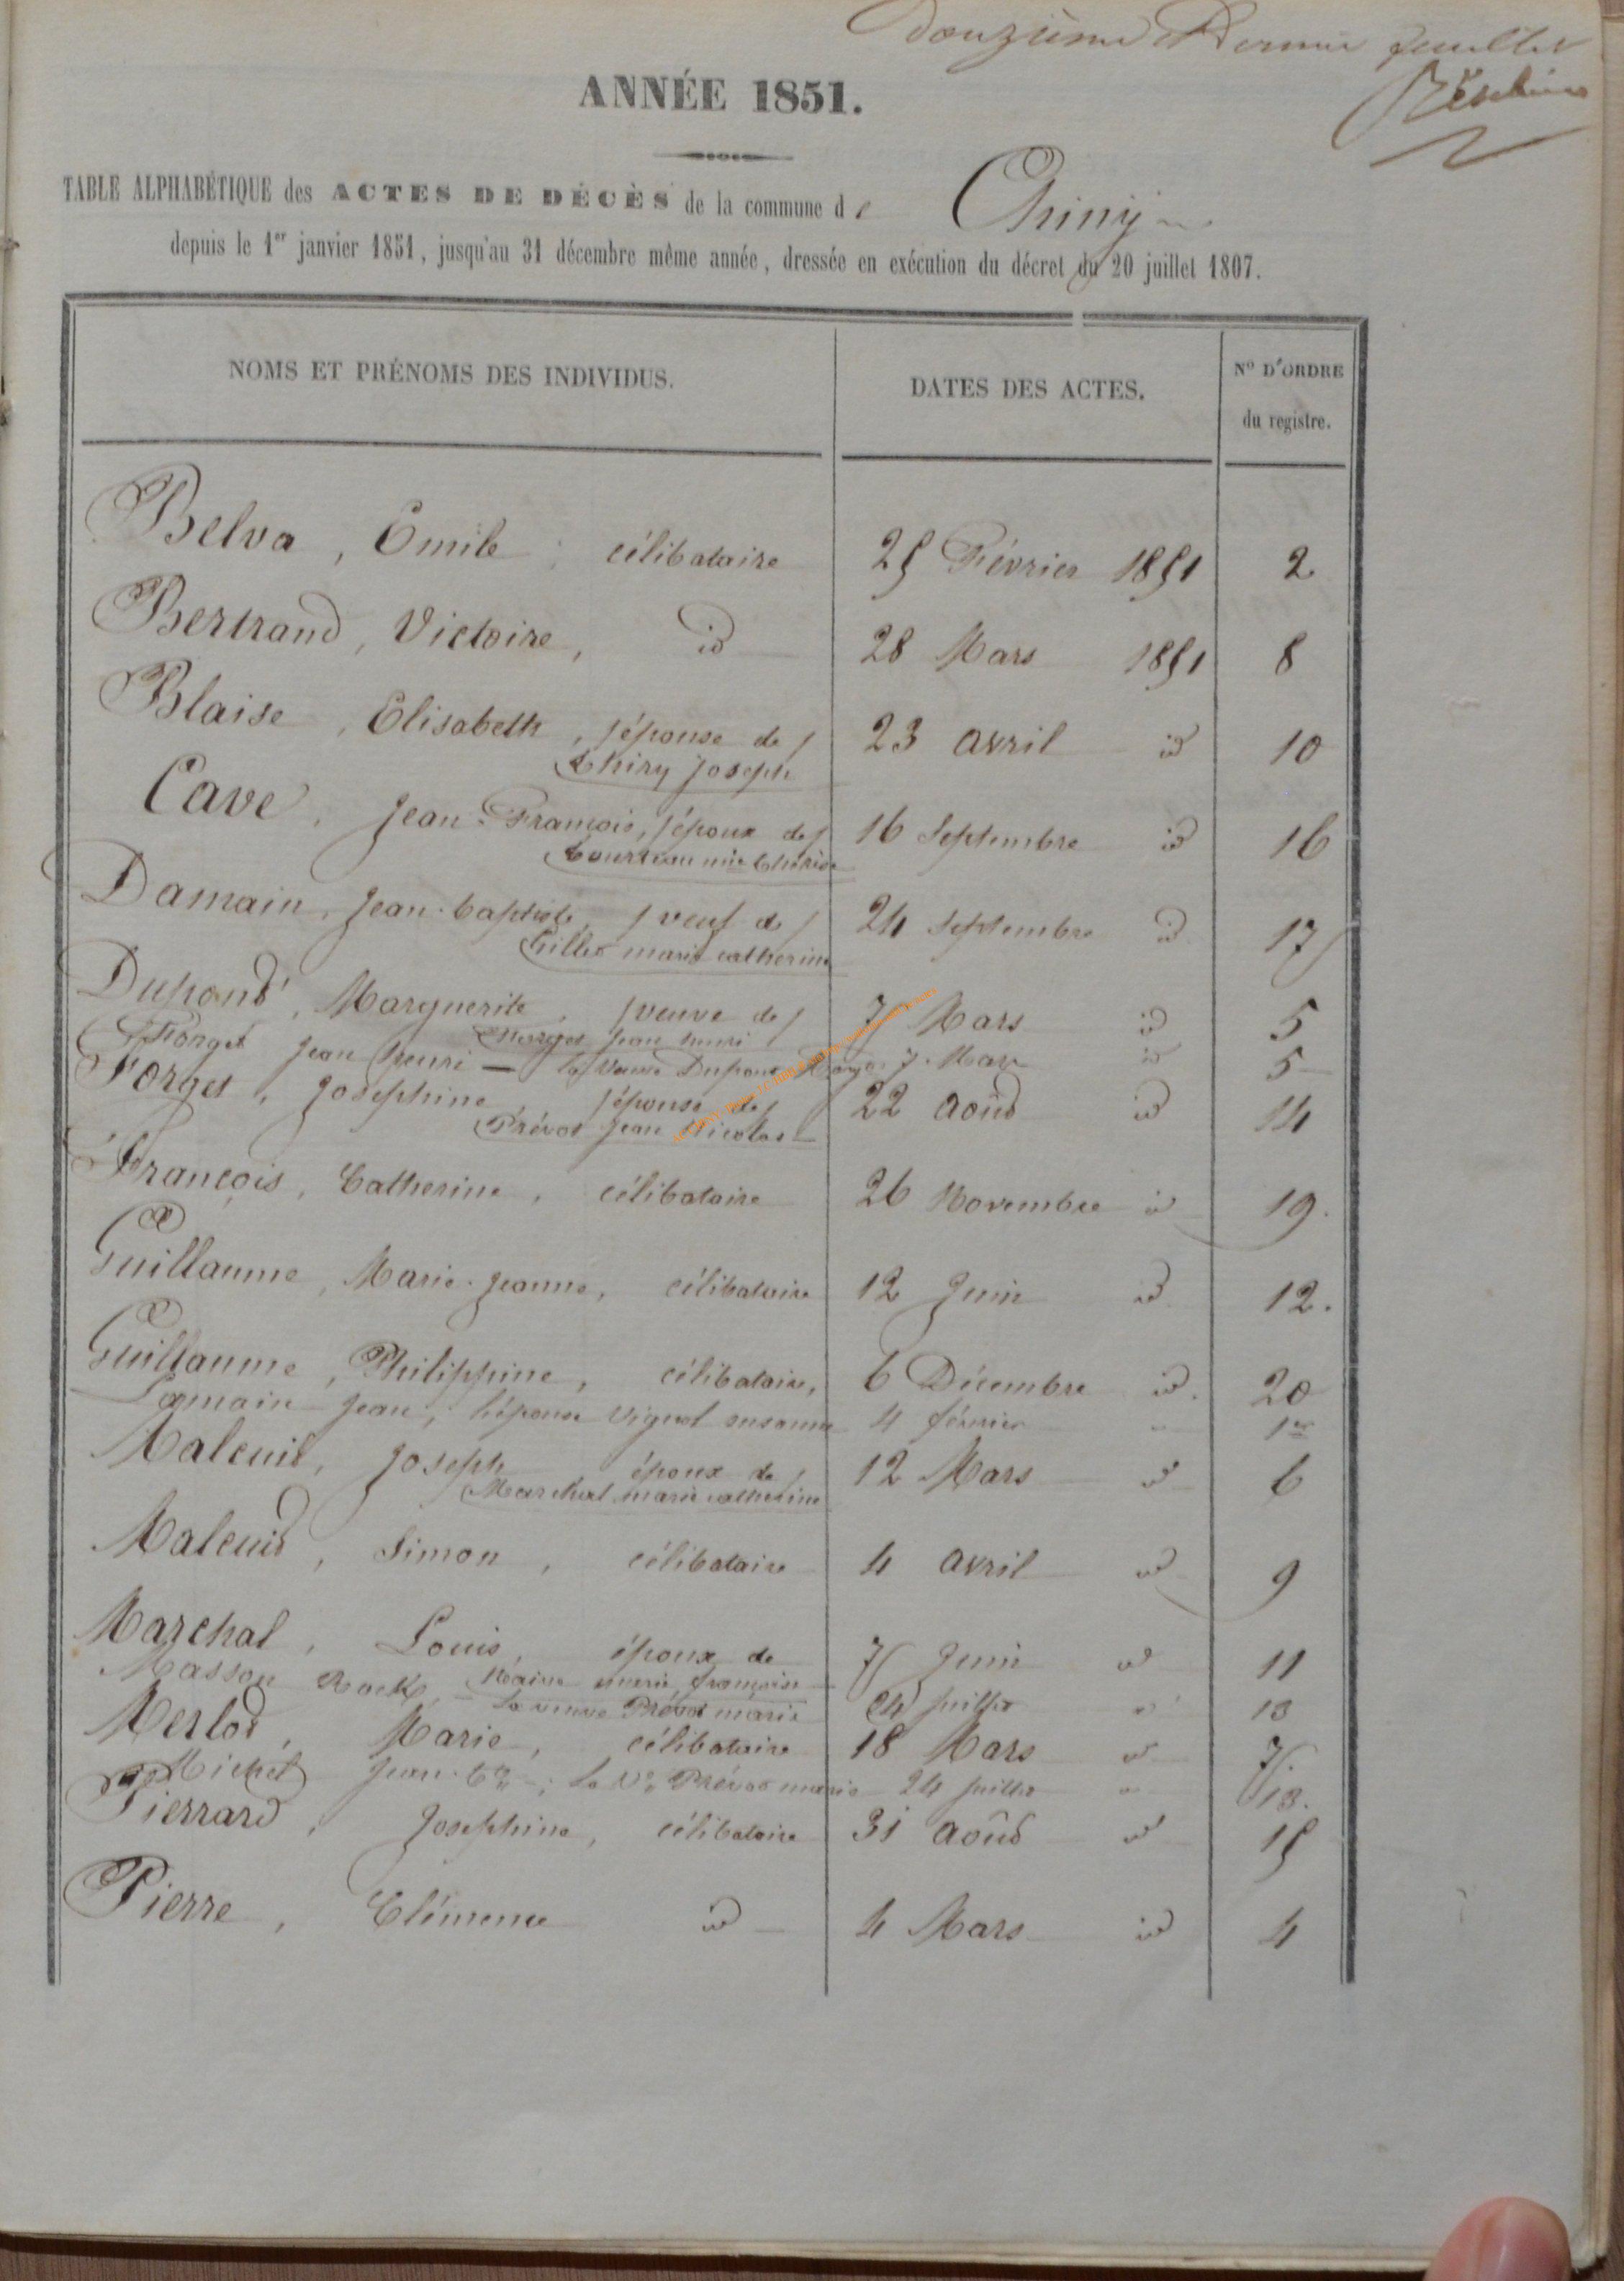 Douzième et Dernier feuillet
ANNÉE 1851.
TABLE ALPHABÉTIQUE des ACTES DE DÉCÈS de la commune de Chiny
depuis le 1er janvier 1851, jusqu'au 31 décembre même année, dressée en exécution du décret du 20 juillet 1807.
NOMS ET PRÉNOMS DES INDIVIDUS. DATES DES ACTES. N° D'ORDRE
du registre.
Belva, Emile, célibataire 25 Février 1851 2
Bertrand, Victoire, id 28 Mars 1851 8
Blaise, Elisabeth, épouse de 23 avril id 10
thiry joseph
Cave, jean-François, époux de 16 Septembre id 16
tourteau mie thérèse
Damain, jean-baptiste, veuf de 24 septembre id 17
Gilles marie catherine
Dupond, Marguerite, veuve de 7 Mars id 5
Forget jean henri
Forget jean henri — la veuve Dupond 7 Mars id 5
Forget, josephine, épouse de 22 août id 14
Prévot jean nicolas
François, Catherine, célibataire 26 Novembre id 19.
Guillaume, Marie-jeanne, célibataire 12 juin id 12.
Guillaume, Philippine, célibataire, 6 Décembre id. 20
Lamain jean, l'épouse Vignol susanne 4 février 1er
Maleuit, joseph époux de 12 Mars id 6
Marchal marie catherine
Maleuit, simon, célibataire 4 avril id 9
Marchal, Louis, époux de 7 juin id 11
marie françoise
Masson Rock, la veuve Prévot marie 24 juillet 13
Merlot, Marie, célibataire 18 Mars id 7
Michel jean-bte, la Ve Prévot marie 24 juillet 13.
Pierrard, josephine, célibataire 31 août id 15
Pierre, Clémence id 4 Mars id 4